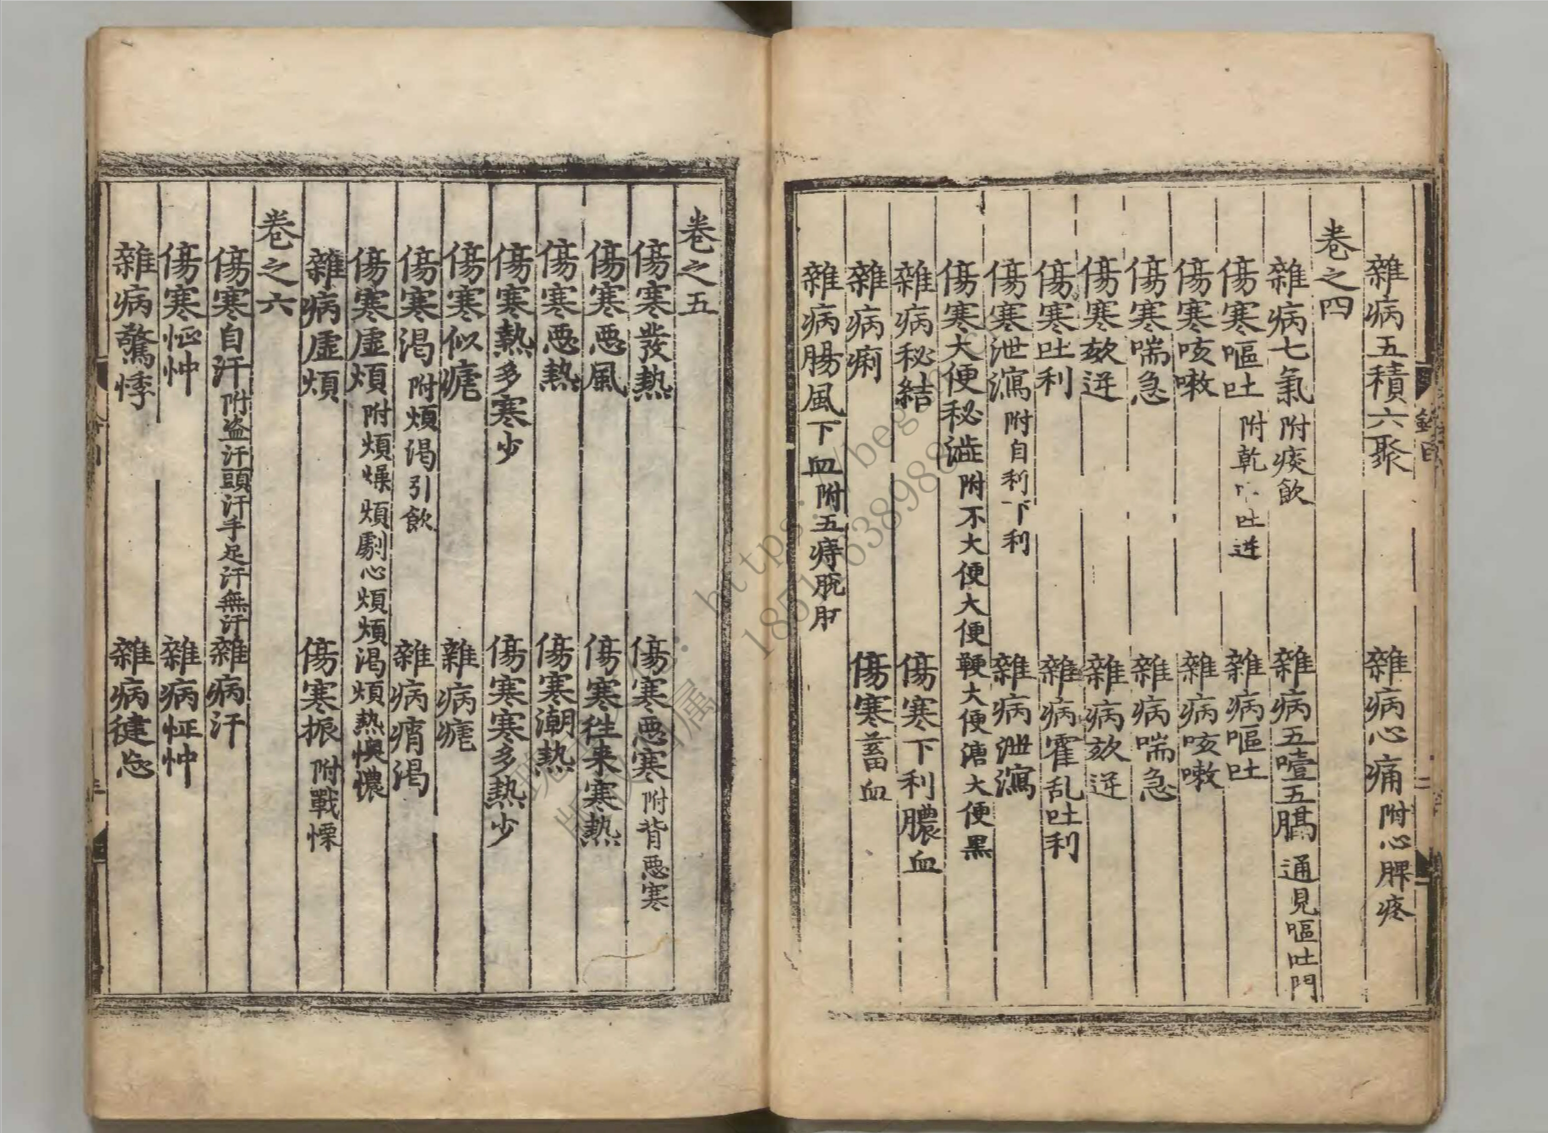 雜病五積六聚 雜病心痛附心脾疼
卷之四
雜病七氣附痰飲 雜病五噎五膈通見嘔吐門
傷寒嘔吐附乾 吐逆 雜病嘔吐
傷寒咳嗽 雜病咳嗽
傷寒喘急 雜病喘急
傷寒欬逆 雜病欬逆
傷寒吐利 雜病霍乱吐利
傷寒泄瀉附自利下利 雜病泄瀉
傷寒大便秘澁附不大便大便鞕大便溏大便黑
雜病秘結 傷寒下利膿血
雜病痢 傷寒蓄血
雜病腸風下血附五痔脫肛
卷之五
傷寒發熱 傷寒惡寒附背惡寒
傷寒惡風 傷寒往来寒熱
傷寒惡熱 傷寒潮熱
傷寒熱多寒少 傷寒寒多熱少
傷寒似瘧 雜病瘧
傷寒渴附煩渴引飲 雜病痟渴
傷寒虛煩附煩燥煩劇心煩煩渴煩熱懊憹
雜病虛煩 傷寒振附戰慄
卷之六
傷寒自汗附盜汗頭汗手足汗無汗 雜病汗
傷寒怔忡 雜病怔忡
雜病驚悸 雜病健忘